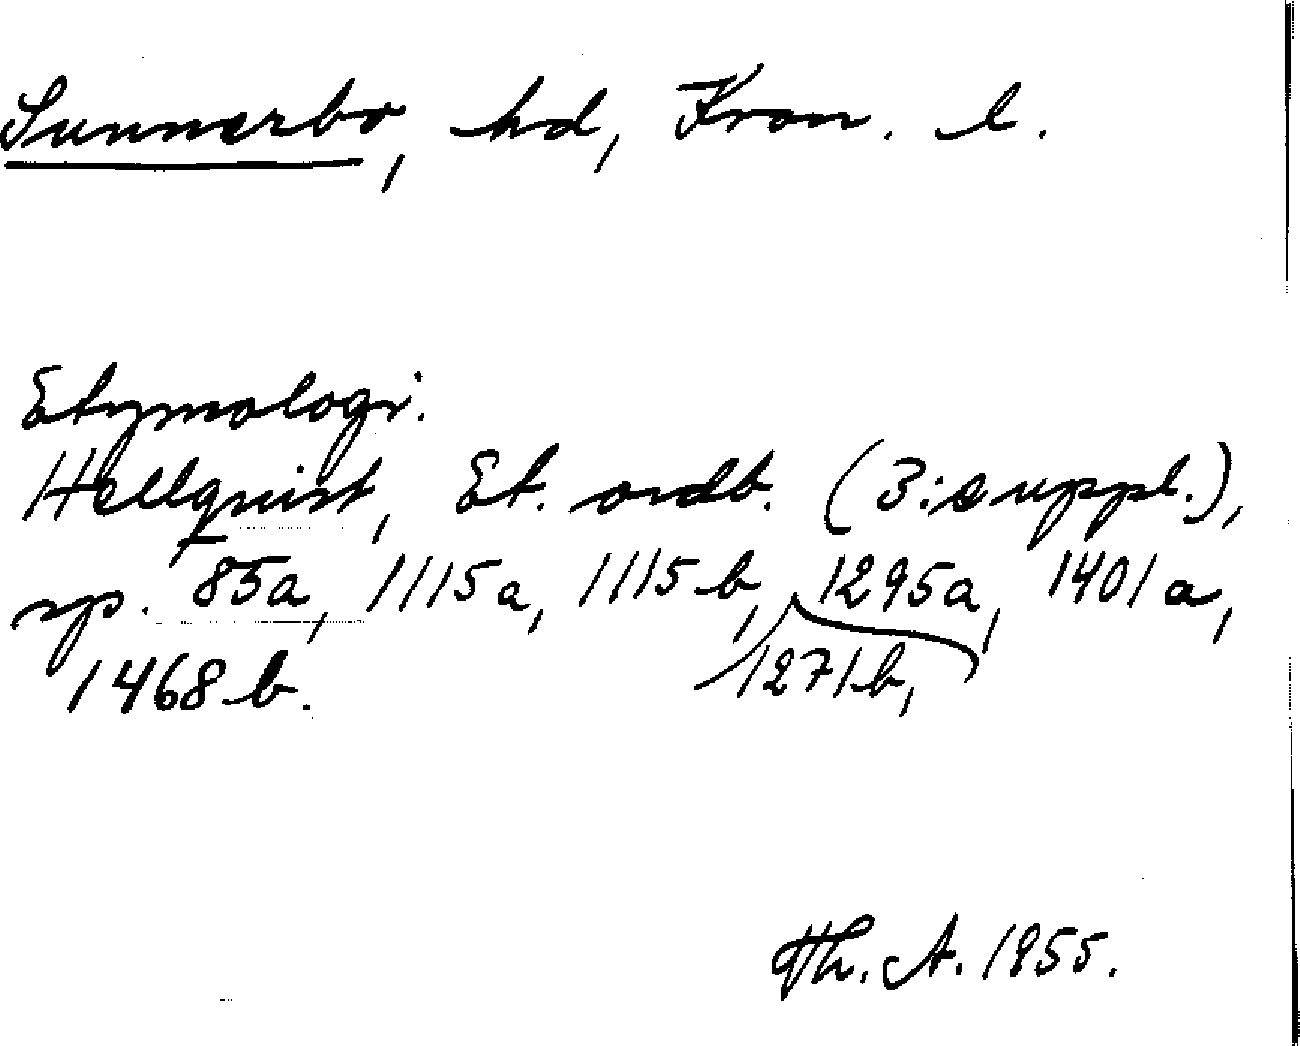 Sunnerbo, hd, Kron. l.
Etymologi.
Hellquist, Et. ordb. (3: suppl.),
sp. 85a, 1115a, 1115b, 1295a, 1401a,
1468b. 1271b,
Th. A. 1955.